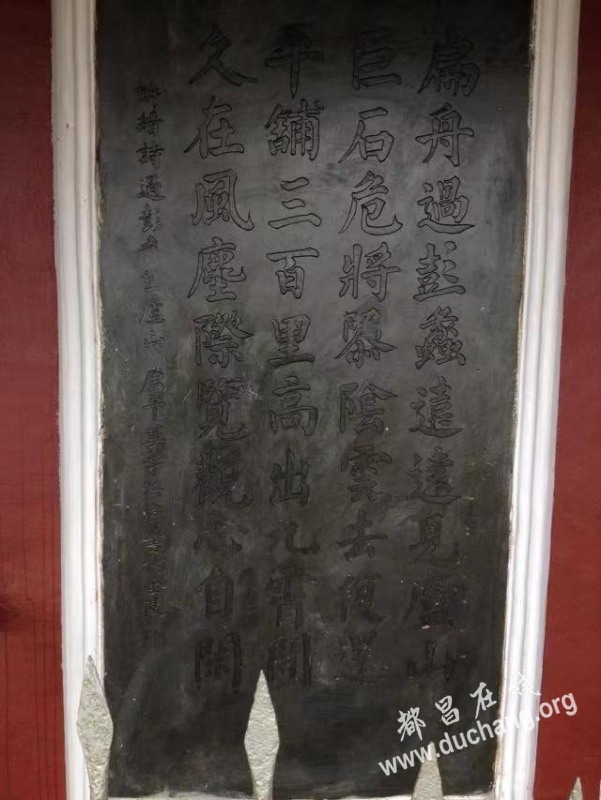 扁舟過彭蠡遠遠見廬山
巨石危將隳陰雲去復還
平舖三百里高出九霄間
久在風塵際覽觀心自閑
詩過彭
都昌在线
www.duchang.org